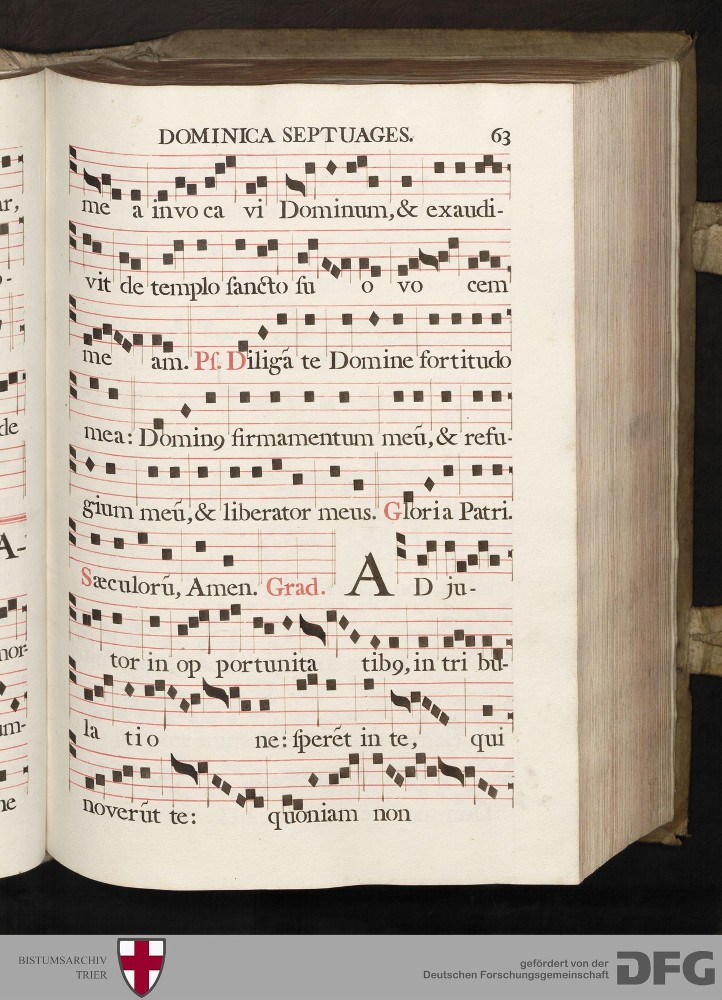 DOMINICA SEPTUAGES. 63
me a invo ca vi Dominum, & exaudi-
vit de templo ſancto ſu o vo cem
me am. Pſ. Diligã te Domine fortitudo
mea: Dominꝯ firmamentum meũ, & refu-
gium meũ, & liberator meus. Gloria Patri.
Sæculorũ, Amen. Grad. AD ju-
tor in op portunita tibꝯ, in tri bu-
la tio ne: ſperẽt in te, qui
noverũt te: quoniam non
ar,
de
A-
nor-
um-
ne
BISTUMSARCHIV
TRIER
gefördert von der
Deutschen Forschungsgemeinschaft
DFG